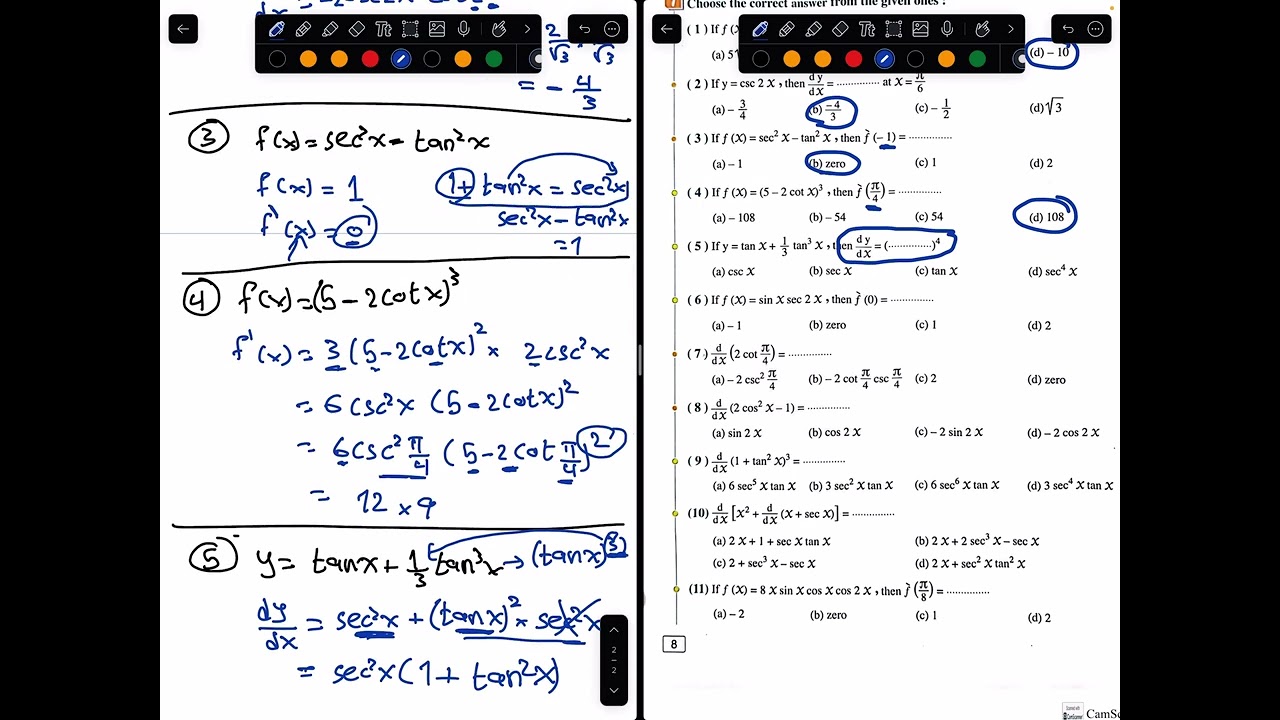 = - 4/3
③ f(x) = sec²x - tan²x
f(x) = 1
1 + tan²x = sec²x
f'(x) = 0
sec²x - tan²x
= 1
④ f(x) = (5 - 2cotx)³
f'(x) = 3(5 - 2cotx)² × 2csc²x
= 6csc²x (5 - 2cotx)²
= 6csc² π/4 (5 - 2cot π/4)²
= 12 × 9
⑤ y = tanx + 1/3 tan³x → (tanx)³
dy/dx = sec²x + (tanx)² × sec²x
= sec²x(1 + tan²x)
2
2
Choose the correct answer from the given ones :
(1) If f (X
(a) 5
(d) – 10
(2) If y = csc 2 X , then dy/dX = ............... at X = π/6
(a) – 3/4 (b) –4/3 (c) – 1/2 (d) √3
(3) If f (X) = sec² X – tan² X , then f̀ (– 1) = ...............
(a) – 1 (b) zero (c) 1 (d) 2
(4) If f (X) = (5 – 2 cot X)³ , then f̀ (π/4) = ...............
(a) – 108 (b) – 54 (c) 54 (d) 108
(5) If y = tan X + 1/3 tan³ X , then dy/dX = (...............)⁴
(a) csc X (b) sec X (c) tan X (d) sec⁴ X
(6) If f (X) = sin X sec 2 X , then f̀ (0) = ...............
(a) – 1 (b) zero (c) 1 (d) 2
(7) d/dX (2 cot π/4) = ...............
(a) – 2 csc² π/4 (b) – 2 cot π/4 csc π/4 (c) 2 (d) zero
(8) d/dX (2 cos² X – 1) = ...............
(a) sin 2 X (b) cos 2 X (c) – 2 sin 2 X (d) – 2 cos 2 X
(9) d/dX (1 + tan² X)³ = ...............
(a) 6 sec⁵ X tan X (b) 3 sec² X tan X (c) 6 sec⁶ X tan X (d) 3 sec⁴ X tan X
(10) d/dX [X² + d/dX (X + sec X)] = ...............
(a) 2 X + 1 + sec X tan X (b) 2 X + 2 sec³ X – sec X
(c) 2 + sec³ X – sec X (d) 2 X + sec² X tan² X
(11) If f (X) = 8 X sin X cos X cos 2 X , then f̀ (π/8) = ...............
(a) – 2 (b) zero (c) 1 (d) 2
8
CamSc